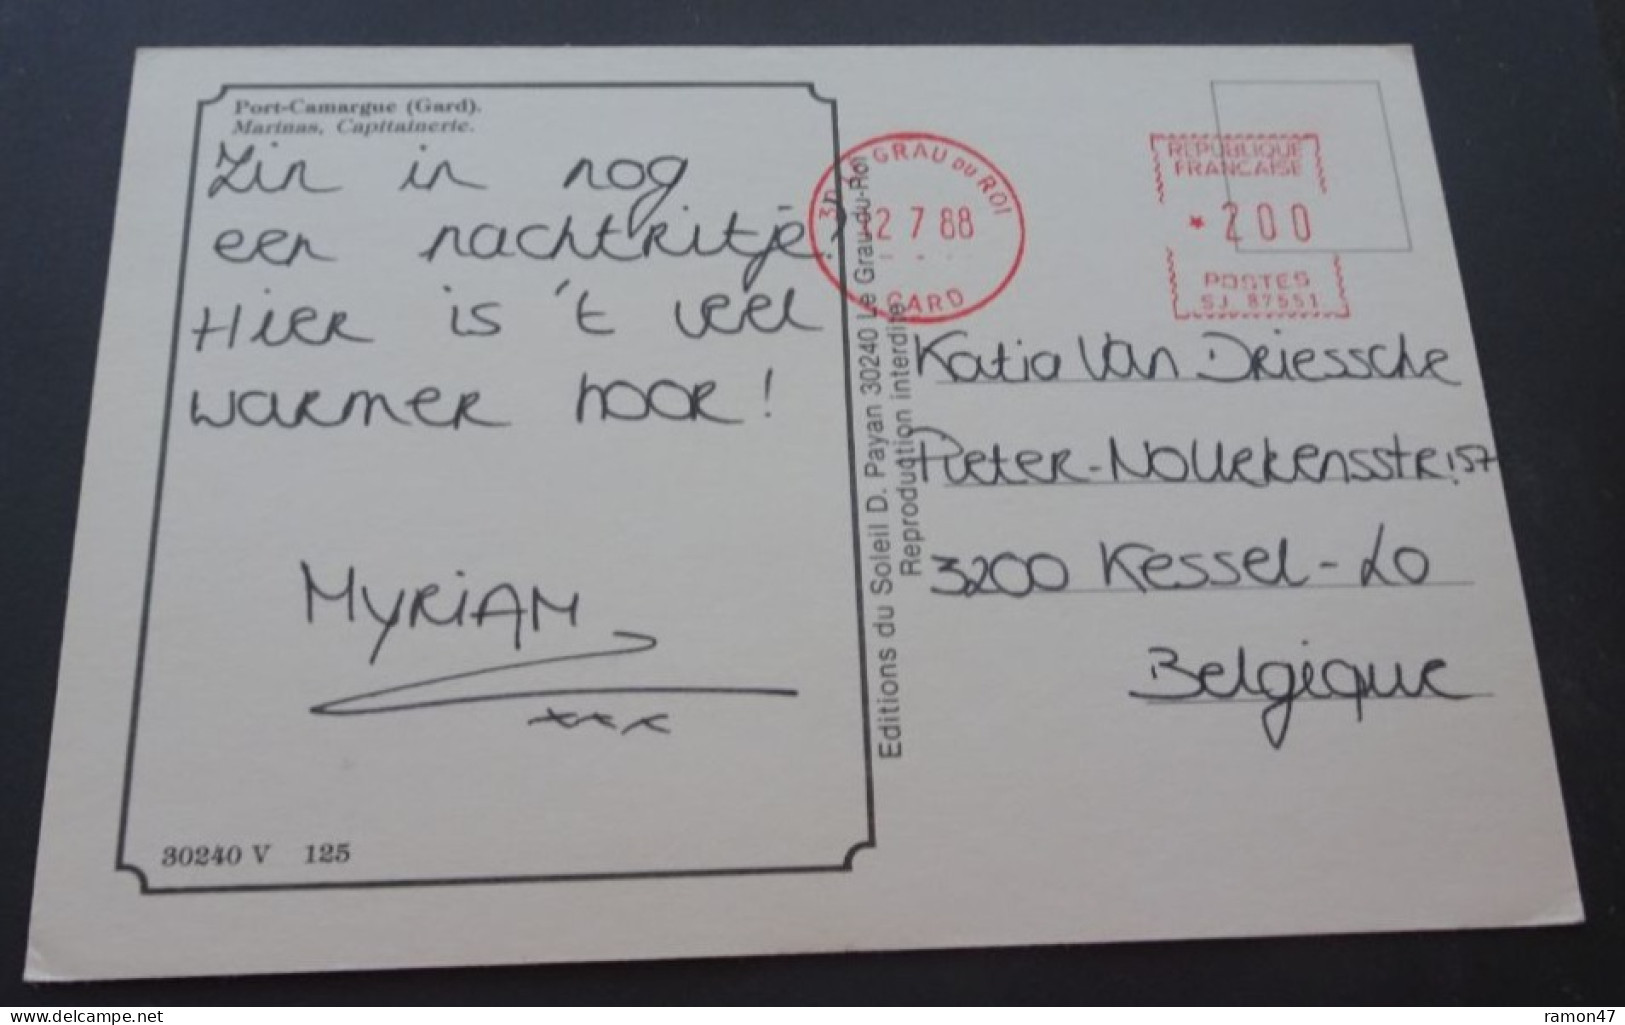 Port-Camargue (Gard).
Marinas, Capitainerie.
Zin in nog
een nachtritje?
Hier is 't veel
warmer hoor!
MYRiAM
xxx
30240 V 125
Editions du Soleil D. Payan 30240 Le Grau-du-Roi
Reproduction interdite
GRAU DU ROI
2 7 88
GARD
REPUBLIQUE
FRANCAISE
* 200
POSTES
SJ 87551
Katia Van Driessche
Pieter-Nollekensstr 157
3200 Kessel-Lo
Belgique
www.delcampe.net
ramon47